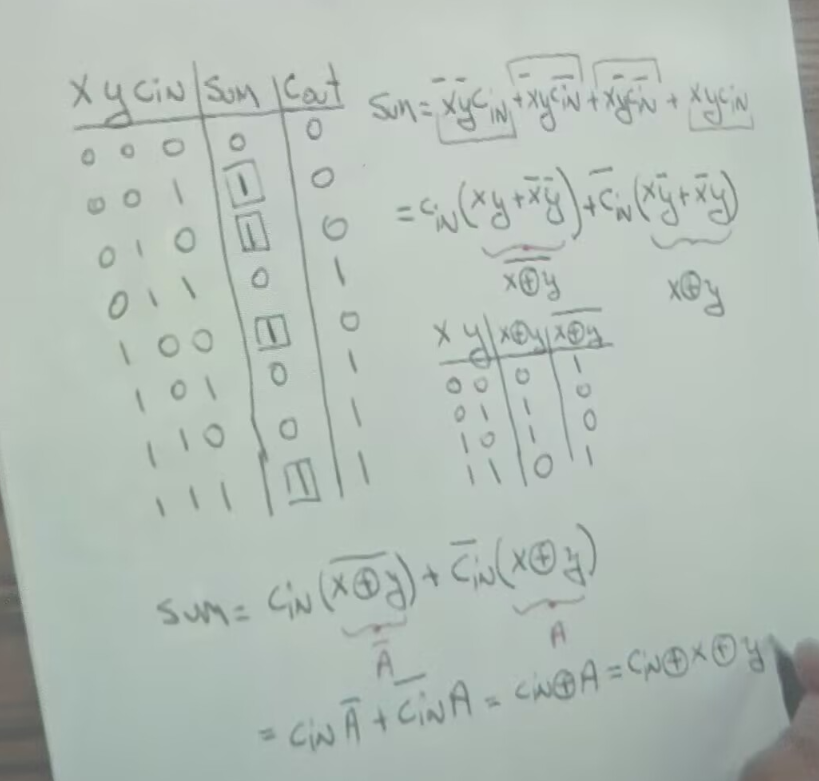 x y CiN | Sum | Cout
0 0 0 | 0 | 0
0 0 1 | 1 | 0
0 1 0 | 1 | 0
0 1 1 | 0 | 1
1 0 0 | 1 | 0
1 0 1 | 0 | 1
1 1 0 | 0 | 1
1 1 1 | 1 | 1
Sum = x̅y̅CiN + x̅yC̅iN + xy̅C̅iN + xyCiN
= CiN(xy + x̅y̅) + C̅iN(xy̅ + x̅y)
x̅⊕̅y̅ x⊕y
x y | x⊕y | x̅⊕̅y̅
0 0 | 0 | 1
0 1 | 1 | 0
1 0 | 1 | 0
1 1 | 0 | 1
Sum = CiN(x̅⊕̅y̅) + C̅iN(x⊕y)
A̅ A
= CiN A̅ + C̅iN A = CiN⊕A = CiN⊕x⊕y